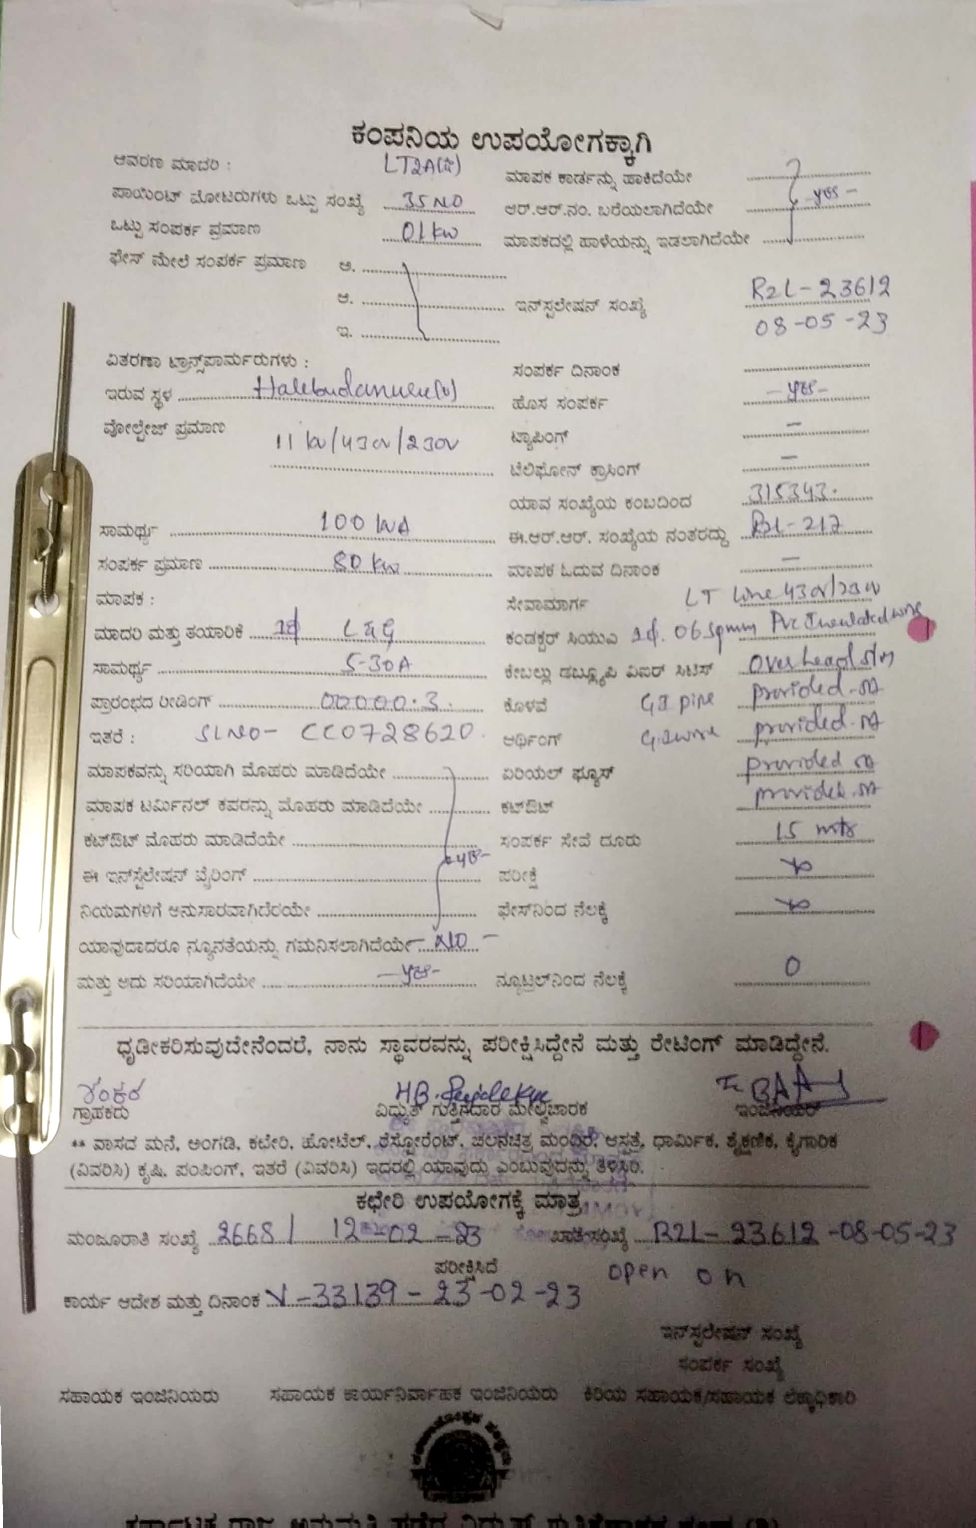 ಕಂಪನಿಯ ಉಪಯೋಗಕ್ಕಾಗಿ
ಆವರಣ ಮಾದರಿ : LT2A
ಮಾಪಕ ಕಾರ್ಡನ್ನು ಹಾಕಿದೆಯೇ
ಪಾಯಿಂಟ್ ಮೋಟರುಗಳು ಒಟ್ಟು ಸಂಖ್ಯೆ 35 NO
ಆರ್.ಆರ್.ನಂ. ಬರೆಯಲಾಗಿದೆಯೇ yes -
ಒಟ್ಟು ಸಂಪರ್ಕ ಪ್ರಮಾಣ 01 kw
ಮಾಪಕದಲ್ಲಿ ಹಾಳೆಯನ್ನು ಇಡಲಾಗಿದೆಯೇ
ಫೇಸ್ ಮೇಲೆ ಸಂಪರ್ಕ ಪ್ರಮಾಣ ಅ.
ಆ.
ಇನ್‌ಸ್ಟಲೇಷನ್ ಸಂಖ್ಯೆ R2L-23612
ಇ.
08-05-23
ವಿತರಣಾ ಟ್ರಾನ್ಸ್‌ಪಾರ್ಮರುಗಳು :
ಸಂಪರ್ಕ ದಿನಾಂಕ
ಇರುವ ಸ್ಥಳ
ಹೊಸ ಸಂಪರ್ಕ - yes -
ವೋಲ್ಟೇಜ್ ಪ್ರಮಾಣ 11 kv/430v/230v
ಟ್ಯಾಪಿಂಗ್ -
ಟೆಲಿಫೋನ್ ಕ್ರಾಸಿಂಗ್ -
ಯಾವ ಸಂಖ್ಯೆಯ ಕಂಬದಿಂದ 315343.
ಸಾಮರ್ಥ್ಯ 100 kVA
ಈ.ಆರ್.ಆರ್. ಸಂಖ್ಯೆಯ ನಂತರದ್ದು BL-217
ಸಂಪರ್ಕ ಪ್ರಮಾಣ 80 kw
ಮಾಪಕ ಓದುವ ದಿನಾಂಕ -
ಮಾಪಕ :
ಸೇವಾಮಾರ್ಗ LT Line 430v/230v
ಮಾದರಿ ಮತ್ತು ತಯಾರಿಕೆ 1ϕ L&G
ಕಂಡಕ್ಟರ್ ಸಿಯುಎ 1ϕ. 06 sqmm PVC Insulated wire
ಸಾಮರ್ಥ್ಯ 5-30A
ಕೇಬಲ್ಲು ಡಬ್ಲ್ಯೂಪಿ ವಿಐರ್ ಸಿಟಿಸ್ Overhead
ಪ್ರಾರಂಭದ ರೀಡಿಂಗ್ 00000.3
ಕೊಳವೆ GI pipe provided
ಇತರೆ : SLNO- CC0728620.
ಆರ್ಥಿಂಗ್ G.I wire provided
ಮಾಪಕವನ್ನು ಸರಿಯಾಗಿ ಮೊಹರು ಮಾಡಿದೆಯೇ
ಏರಿಯಲ್ ಫ್ಯೂಸ್ provided
ಮಾಪಕ ಟರ್ಮಿನಲ್ ಕವರನ್ನು ಮೊಹರು ಮಾಡಿದೆಯೇ
ಕಟ್‌ಔಟ್ provided
ಕಟ್‌ಔಟ್ ಮೊಹರು ಮಾಡಿದೆಯೇ
ಸಂಪರ್ಕ ಸೇವೆ ದೂರು 15 mts
ಈ ಇನ್‌ಸ್ಟಲೇಷನ್ ವೈರಿಂಗ್ yes-
ಪರೀಕ್ಷೆ
ನಿಯಮಗಳಿಗೆ ಅನುಸಾರವಾಗಿದೆರಯೇ
ಫೇಸ್‌ನಿಂದ ನೆಲಕ್ಕೆ
ಯಾವುದಾದರೂ ನ್ಯೂನತೆಯನ್ನು ಗಮನಿಸಲಾಗಿದೆಯೇ NO -
ಮತ್ತು ಅದು ಸರಿಯಾಗಿದೆಯೇ - yes -
ನ್ಯೂಟ್ರಲ್‌ನಿಂದ ನೆಲಕ್ಕೆ 0
ಧೃಡೀಕರಿಸುವುದೇನೆಂದರೆ, ನಾನು ಸ್ಥಾವರವನ್ನು ಪರೀಕ್ಷಿಸಿದ್ದೇನೆ ಮತ್ತು ರೇಟಿಂಗ್ ಮಾಡಿದ್ದೇನೆ.
ಶಂಕರ
ಗ್ರಾಹಕರು ವಿದ್ಯುತ್ ಗುತ್ತಿಗೆದಾರ ಮೇಲ್ವಿಚಾರಕ ಇಂಜಿನಿಯರ್
** ವಾಸದ ಮನೆ, ಅಂಗಡಿ, ಕಛೇರಿ, ಹೋಟೆಲ್, ರೆಸ್ಟೋರೆಂಟ್, ಚಲನಚಿತ್ರ ಮಂದಿರ, ಆಸ್ಪತ್ರೆ, ಧಾರ್ಮಿಕ, ಶೈಕ್ಷಣಿಕ, ಕೈಗಾರಿಕ
(ವಿವರಿಸಿ) ಕೃಷಿ, ಪಂಪಿಂಗ್, ಇತರೆ (ವಿವರಿಸಿ) ಇದರಲ್ಲಿ ಯಾವುದ್ದು ಎಂಬುವುದನ್ನು ತಿಳಿಸ್ತಿರಿ.
ಕಛೇರಿ ಉಪಯೋಗಕ್ಕೆ ಮಾತ್ರ
ಮಂಜೂರಾತಿ ಸಂಖ್ಯೆ 2668/ 12-02-23 ಖಾತೆ ಸಂಖ್ಯೆ R2L-23612-08-05-23
ಪರೀಕ್ಷಿಸಿದೆ open on
ಕಾರ್ಯ ಆದೇಶ ಮತ್ತು ದಿನಾಂಕ V-33139-23-02-23
ಇನ್‌ಸ್ಟಲೇಷನ್ ಸಂಖ್ಯೆ
ಸಂಪರ್ಕ ಸಂಖ್ಯೆ
ಸಹಾಯಕ ಇಂಜಿನಿಯರು ಸಹಾಯಕ ಕಾರ್ಯನಿರ್ವಾಹಕ ಇಂಜಿನಿಯರು ಕಿರಿಯ ಸಹಾಯಕ/ಸಹಾಯಕ ಲೆಕ್ಕಾಧಿಕಾರಿ